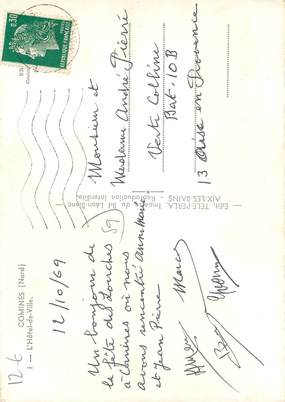 COMINES (Nord)
1 — L'Hôtel-de-Ville.
12/10/69
Un bonjour de
la fête des Louches
à Comines où nous
avons rencontré Anne Marie
et Jean Pierre
Marcel
Yvonne
59
12 €
EDIT. TELE-PERLA, Impasse du Bd Léon-Blanc
AIX-LES-BAINS - Reproduction interdite
0,30
REPUBLIQUE FRANCAISE
Monsieur et
Madame André Pierre
Verte Colline
Bat. 10 B
13 Aix en Provence